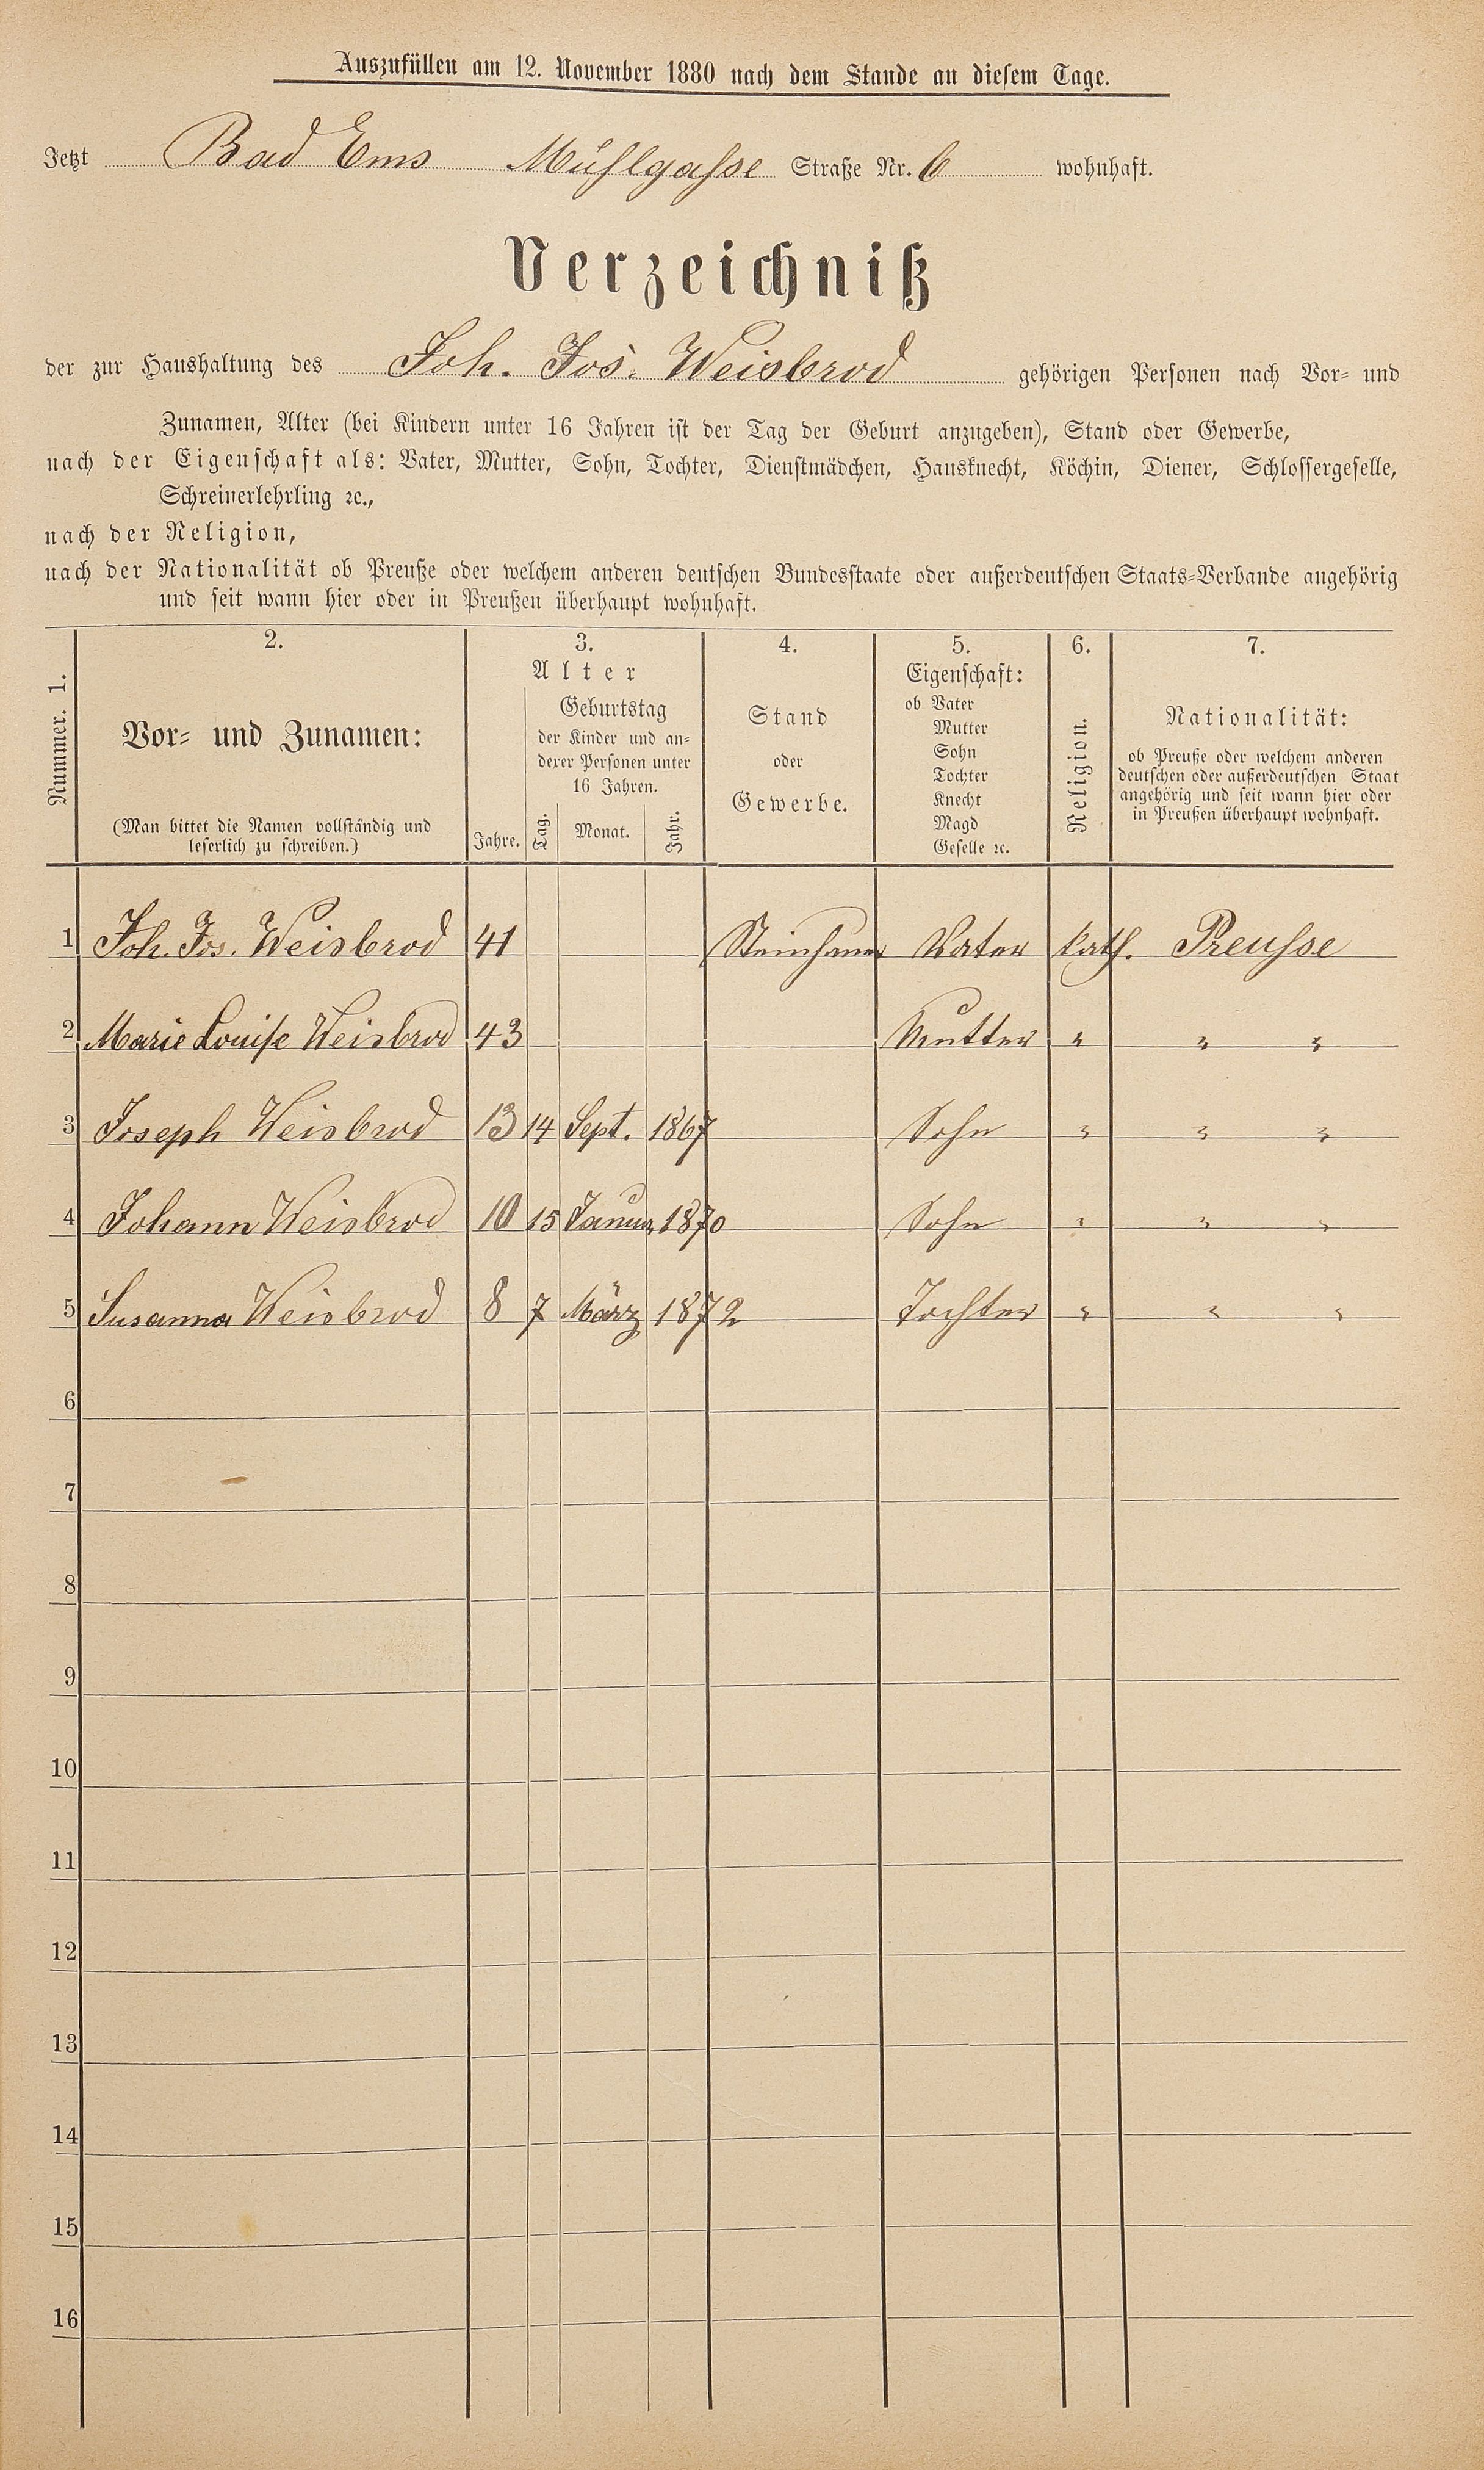 Auszufüllen am 12. November 1880 nach dem Stande an diesem Tage.
Jetzt Bad Ems Mühlgasse Straße Nr. 6 wohnhaft.
Verzeichniß
der zur Haushaltung des Joh. Jos. Weisbrod gehörigen Personen nach Vor- und
Zunamen, Alter (bei Kindern unter 16 Jahren ist der Tag der Geburt anzugeben), Stand oder Gewerbe,
nach der Eigenschaft als: Vater, Mutter, Sohn, Tochter, Dienstmädchen, Hausknecht, Köchin, Diener, Schlossergeselle,
Schreinerlehrling ꝛc.,
nach der Religion,
nach der Nationalität ob Preuße oder welchem anderen deutschen Bundesstaate oder außerdeutschen Staats-Verbande angehörig
und seit wann hier oder in Preußen überhaupt wohnhaft.
Nummer. 1.
2.
Vor- und Zunamen:
(Man bittet die Namen vollständig und
leserlich zu schreiben.)
3.
Alter
Jahre.
Geburtstag
der Kinder und an-
derer Personen unter
16 Jahren.
Tag. Monat. Jahr.
4.
Stand
oder
Gewerbe.
5.
Eigenschaft:
ob Vater
Mutter
Sohn
Tochter
Knecht
Magd
Geselle ꝛc.
6.
Religion.
7.
Nationalität:
ob Preuße oder welchem anderen
deutschen oder außerdeutschen Staat
angehörig und seit wann hier oder
in Preußen überhaupt wohnhaft.
1 Joh. Jos. Weisbrod 41 Steinhauer Vater kath. Preusse
2 Marie Louise Weisbrod 43 Mutter " " "
3 Joseph Weisbrod 13 14 Sept. 1867 Sohn " " "
4 Johann Weisbrod 10 15 Januar 1870 Sohn " " "
5 Susanna Weisbrod 8 7 März 1872 Tochter " " "
6
7
8
9
10
11
12
13
14
15
16